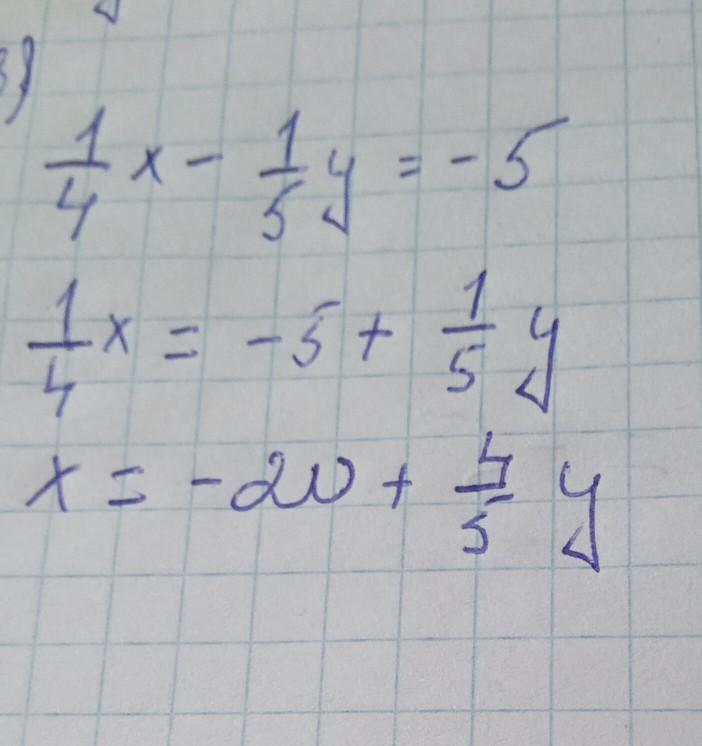 3)
1/4 x - 1/5 y = -5
1/4 x = -5 + 1/5 y
x = -20 + 4/5 y